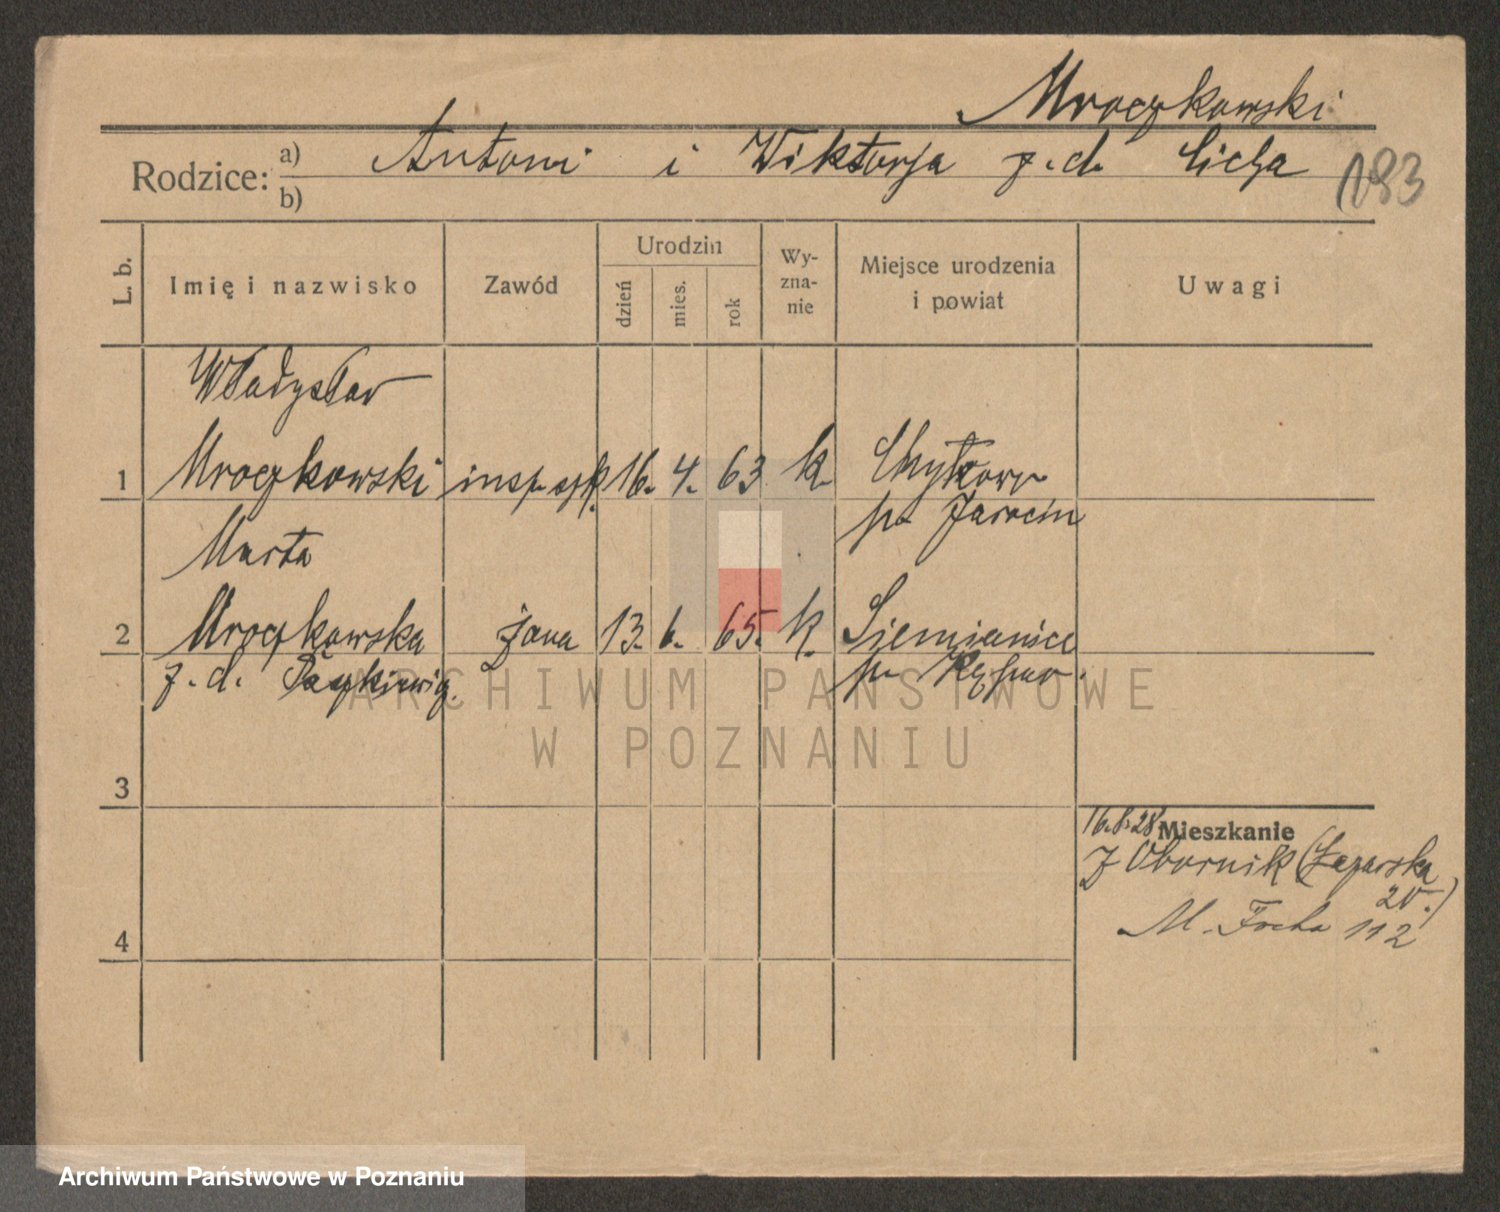 Mroczkowski
Rodzice: a) Antoni i Wiktorja z. d. Cicha
b)
193
L. b.
Imię i nazwisko
Zawód
Urodzin
dzień
mies.
rok
Wy-
zna-
nie
Miejsce urodzenia
i powiat
Uwagi
Władysław
1 Mroczkowski insp. szk. 16. 4. 63 k. Chytrowy
p. Jarocin
Marta
2 Mroczkowska żona 13. 6. 65. k. Siemianice
z. d. p. Kępno.
3
16.8.28 Mieszkanie
Z Obornik (Łazarska
20.)
M. Focha 112
4
ARCHIWUM PAŃSTWOWE
W POZNANIU
Archiwum Państwowe w Poznaniu